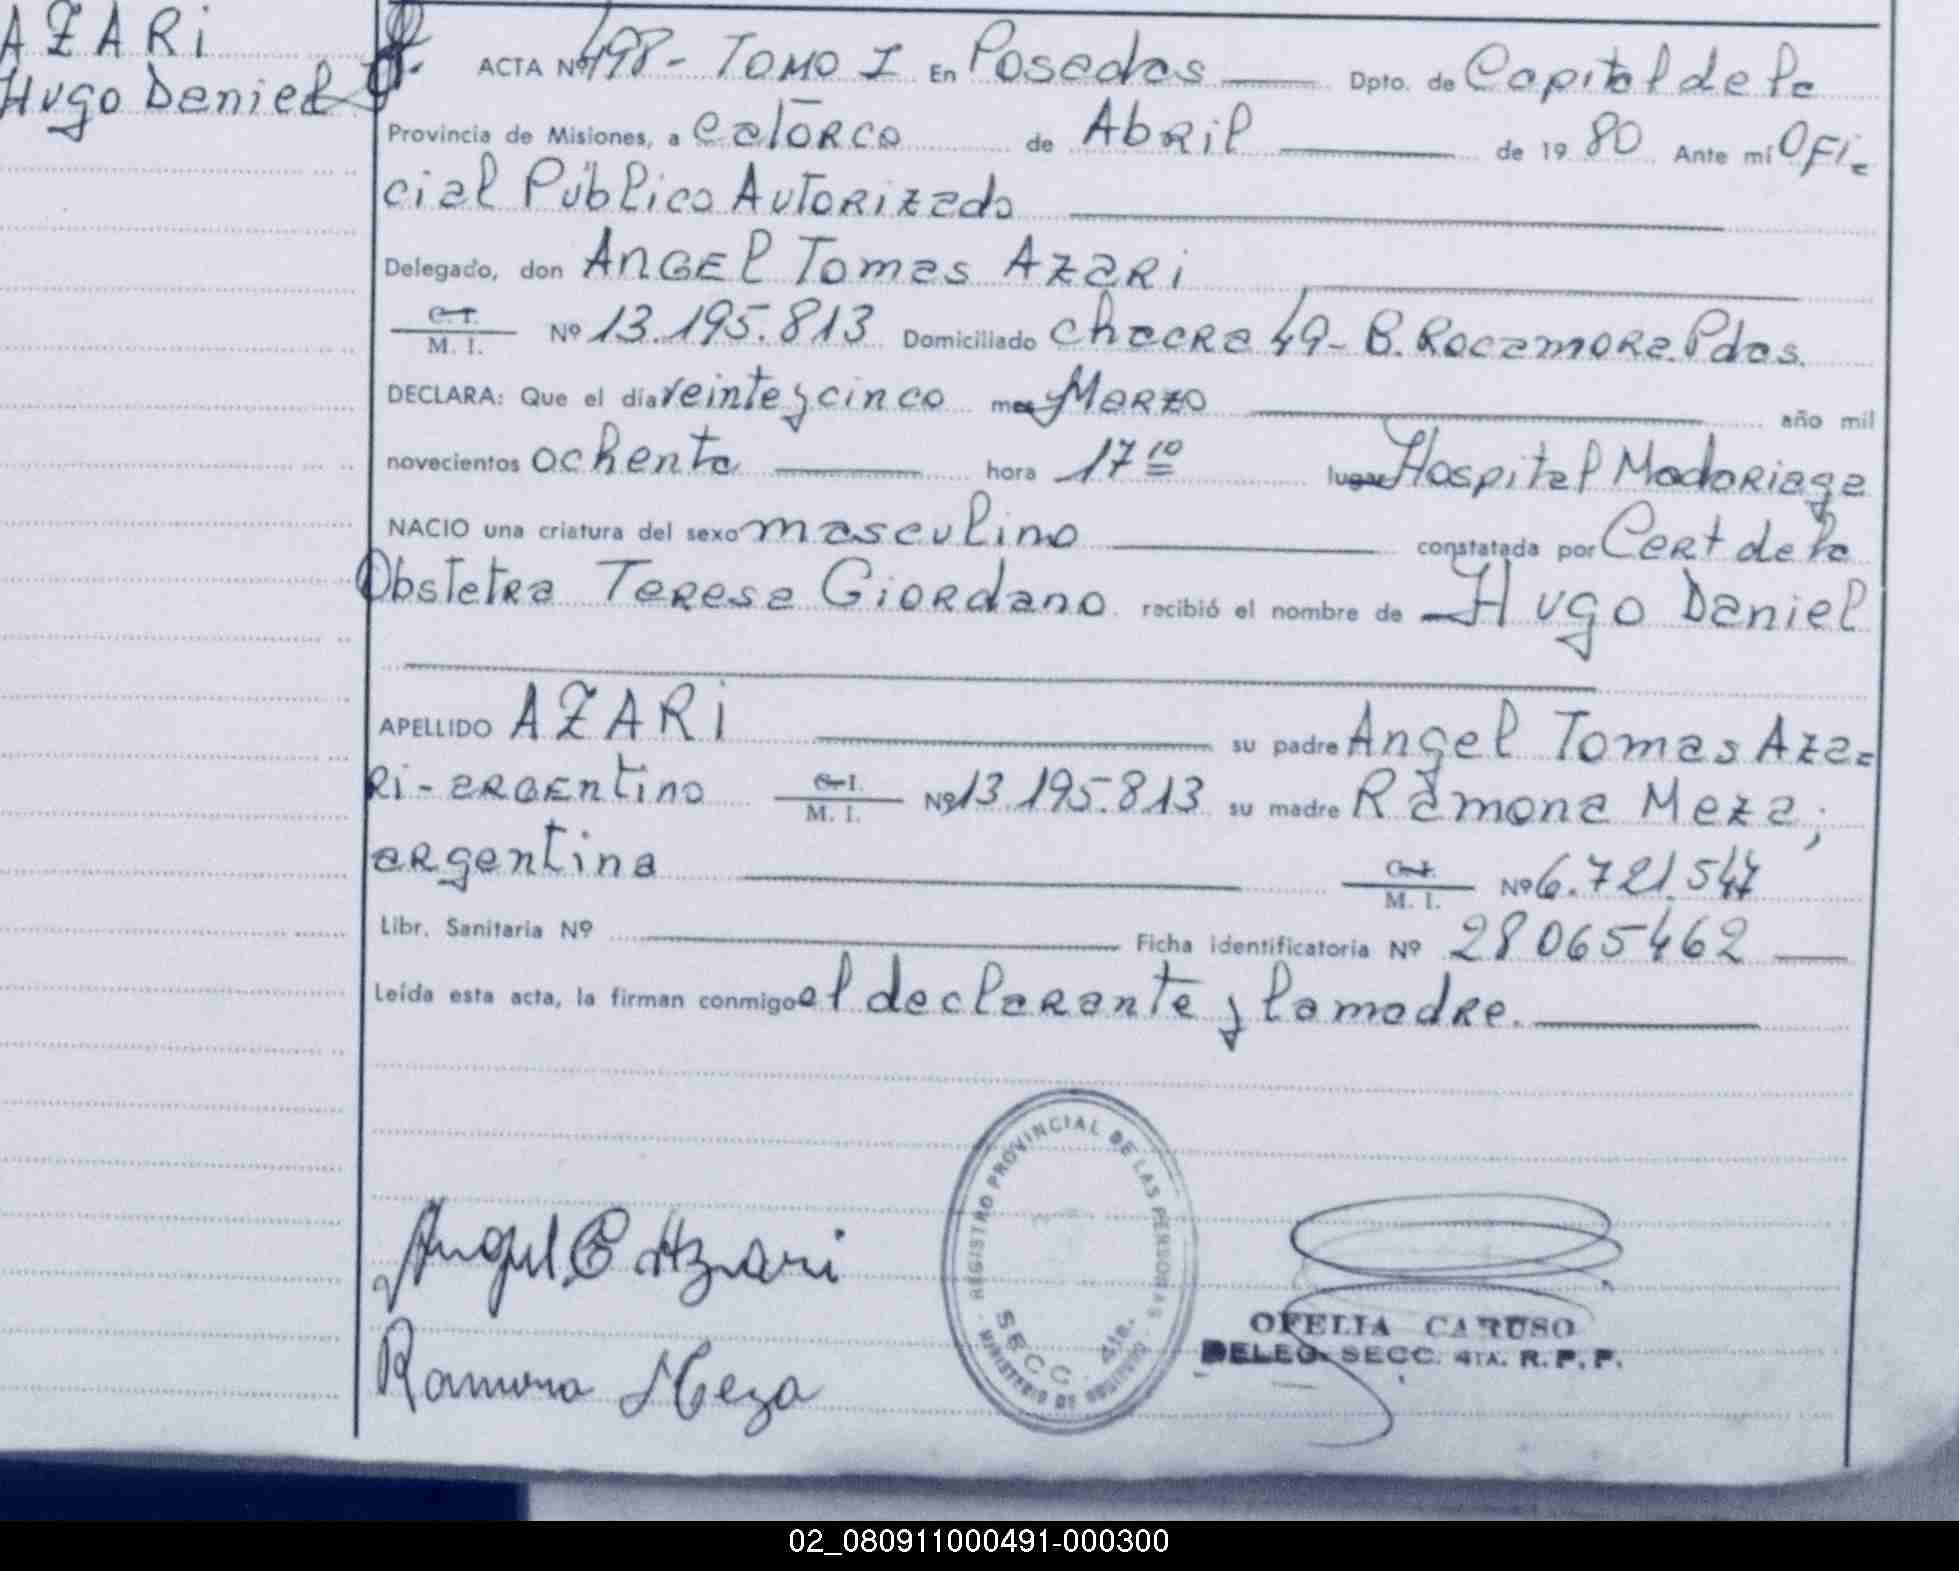 AZARI
Hugo Daniel
ACTA Nº 498 - TOMO I En Posadas Dpto. de Capital de la
Provincia de Misiones, a catorce de Abril de 19 80 Ante mí Ofi=
cial Público Autorizado
Delegado, don ANGEl Tomas AzaRi
C. I.
M. I. Nº 13.195.813 Domiciliado chacra 49 - B. Rocamora. Pdas.
DECLARA: Que el día veinte y cinco mes Marzo año mil
novecientos ochenta hora 17 10 lugar Hospital Madariaga
NACIO una criatura del sexo masculino constatada por Cert de la
Obstetra Teresa Giordano recibió el nombre de Hugo Daniel
APELLIDO AZARI su padre Angel Tomas Aza=
ri - argentino C. I. M. I. Nº 13.195.813 su madre Ramona Meza;
argentina C. I. M. I. Nº 6.721.547
Libr. Sanitaria Nº Ficha identificatoria Nº 28065462
Leída esta acta, la firman conmigo el declarante y la madre.
REGISTRO PROVINCIAL DE LAS PERSONAS
SECC. 4ta.
MINISTERIO DE GOBIERNO
Angel Azari
OFELIA CARUSO
DELEG. SECC. 4TA. R. P. P.
Ramona Meza
02_080911000491-000300